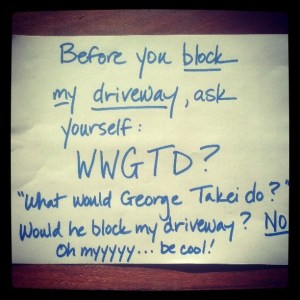 Before you block
my driveway, ask
yourself:
WWGTD?
"What would George Takei do?"
Would he block my driveway? NO
Oh myyyyy... be cool!